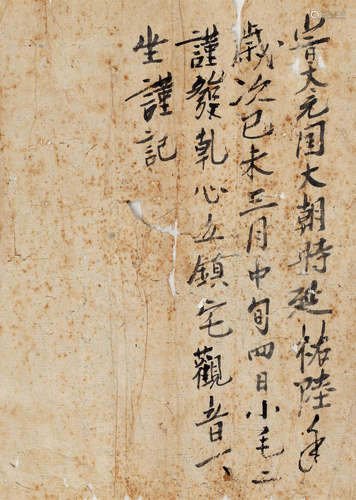 昔大元国大朝時延祐陸年
歳次己未三月中旬四日小毛二
謹發乹心立鎮宅觀音一
坐謹記